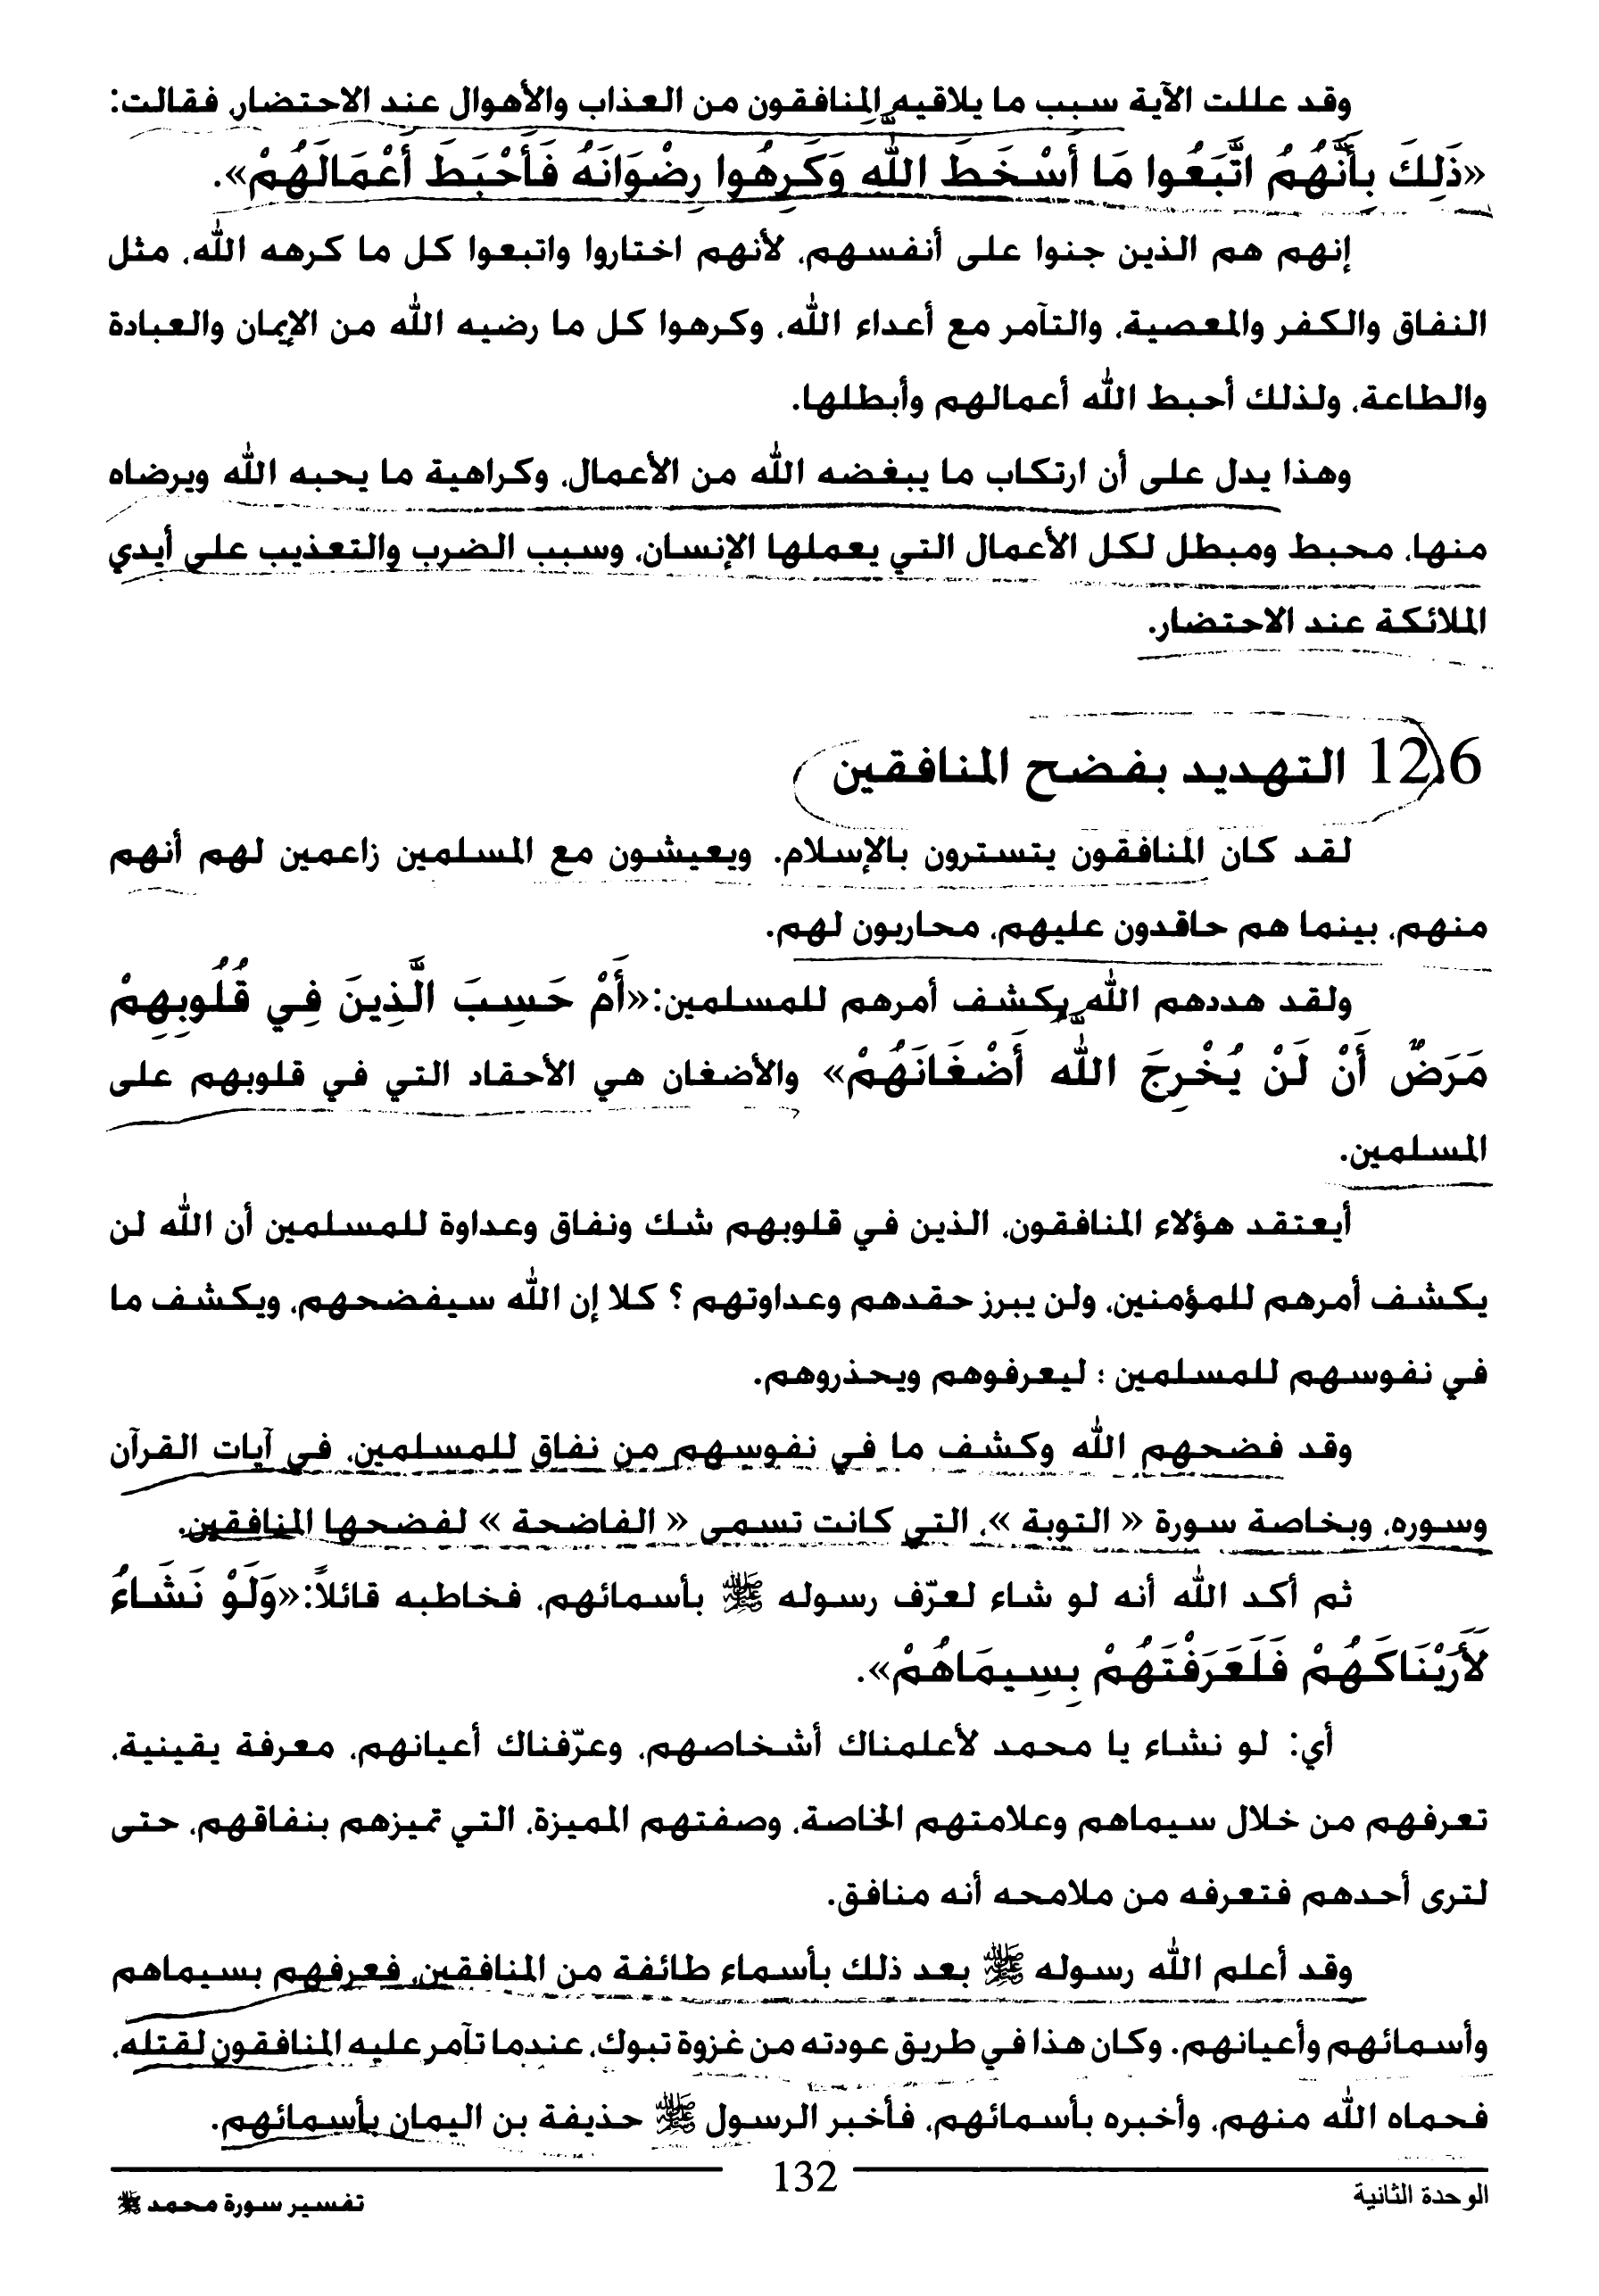 وقد عللت الآية سبب ما يلاقيه المنافقون من العذاب والأهوال عند الاحتضار، فقالت:
«ذَلِكَ بِأَنَّهُمُ اتَّبَعُوا مَا أَسْخَطَ الله وَكَرِهُوا رِضْوَانَهُ فَأَحْبَطَ أَعْمَالَهُمْ».
إنهم هم الذين جنوا على أنفسهم، لأنهم اختاروا واتبعوا كل ما كرهه الله، مثل
النفاق والكفر والمعصية، والتآمر مع أعداء الله، وكرهوا كل ما رضيه الله من الإيمان والعبادة
والطاعة، ولذلك أحبط الله أعمالهم وأبطلها.
وهذا يدل على أن ارتكاب ما يبغضه الله من الأعمال، وكراهية ما يحبه الله ويرضاه
منها، محبط ومبطل لكل الأعمال التي يعملها الإنسان، وسبب الضرب والتعذيب على أيدي
الملائكة عند الاحتضار.
12.6 التهديد بفضح المنافقين
لقد كان المنافقون يتسترون بالإسلام، ويعيشون مع المسلمين زاعمين لهم أنهم
منهم، بينما هم حاقدون عليهم، محاربون لهم.
ولقد هددهم الله بكشف أمرهم للمسلمين:«أَمْ حَسِبَ الَّذِينَ فِي قُلُوبِهِمْ
مَرَضٌ أَنْ لَنْ يُخْرِجَ الله أَضْغَانَهُمْ» والأضغان هي الأحقاد التي في قلوبهم على
المسلمين.
أيعتقد هؤلاء المنافقون، الذين في قلوبهم شك ونفاق وعداوة للمسلمين أن الله لن
يكشف أمرهم للمؤمنين، ولن يبرز حقدهم وعداوتهم ؟ كلا إن الله سيفضحهم، ويكشف ما
في نفوسهم للمسلمين ؛ ليعرفوهم ويحذروهم.
وقد فضحهم الله وكشف ما في نفوسهم من نفاق للمسلمين، في آيات القرآن
وسوره، وبخاصة سورة « التوبة »، التي كانت تسمى « الفاضحة » لفضحها المنافقين.
ثم أكد الله أنه لو شاء لعرّف رسوله ﷺ بأسمائهم، فخاطبه قائلاً:«وَلَوْ نَشَاءُ
لَأَرَيْنَاكَهُمْ فَلَعَرَفْتَهُمْ بِسِيمَاهُمْ».
أي: لو نشاء يا محمد لأعلمناك أشخاصهم، وعرّفناك أعيانهم، معرفة يقينية،
تعرفهم من خلال سيماهم وعلامتهم الخاصة، وصفتهم المميزة، التي تميزهم بنفاقهم، حتى
لترى أحدهم فتعرفه من ملامحه أنه منافق.
وقد أعلم الله رسوله ﷺ بعد ذلك بأسماء طائفة من المنافقين، فعرفهم بسيماهم
وأسمائهم وأعيانهم. وكان هذا في طريق عودته من غزوة تبوك، عندما تآمر عليه المنافقون لقتله،
فحماه الله منهم، وأخبره بأسمائهم، فأخبر الرسول ﷺ حذيفة بن اليمان بأسمائهم.
132
الوحدة الثانية
تفسير سورة محمد ﷺ